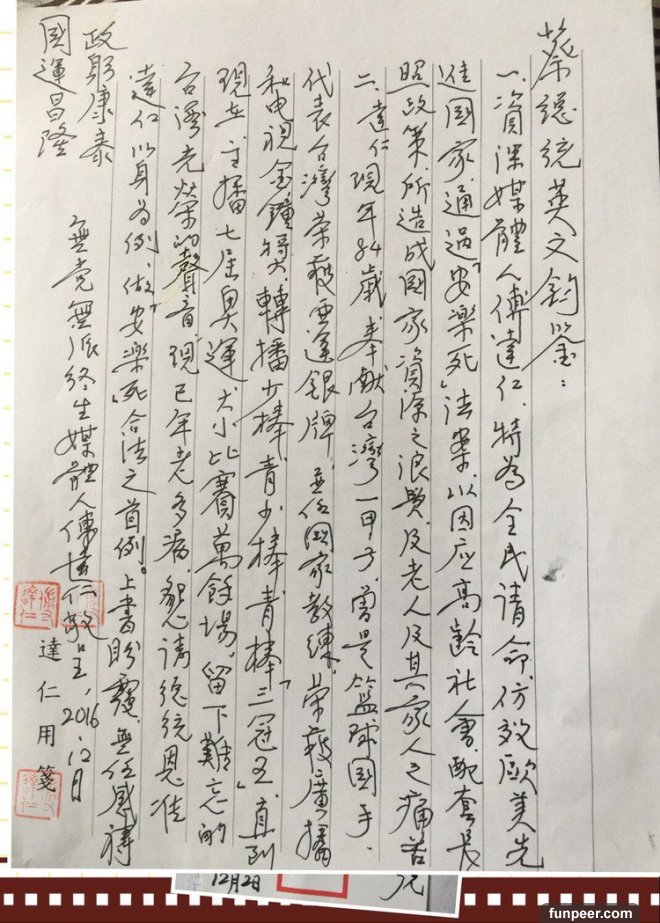 蔡總統英文鈞鑒：
一、資深媒體人傅達仁，特為全民請命，仿效歐美先
進國家，通過「安樂死」法案，以因应高齡社會，配套長
照政策，所造成國家資源之浪費，及老人及其家人之痛苦
二、達仁現年84歲，奉獻台灣一甲子，曾是籃球國手，
代表台灣榮獲亞運銀牌，並任國家教練，榮獲廣播
和电視金鐘獎，轉播少棒、青少棒、青棒「三冠王」直到
現在，主播七屆奧運，大小比賽萬餘場，留下難忘的
台灣光榮的聲音，現已年老多病，懇請總統恩准
達仁以身為例，做「安樂死」合法之首例。上書盼覆無任感禱
政躬康泰
國運昌隆
無党無派終生媒體人傅達仁敬呈，2016.12月
達仁用箋
12月2日
funpeer.com